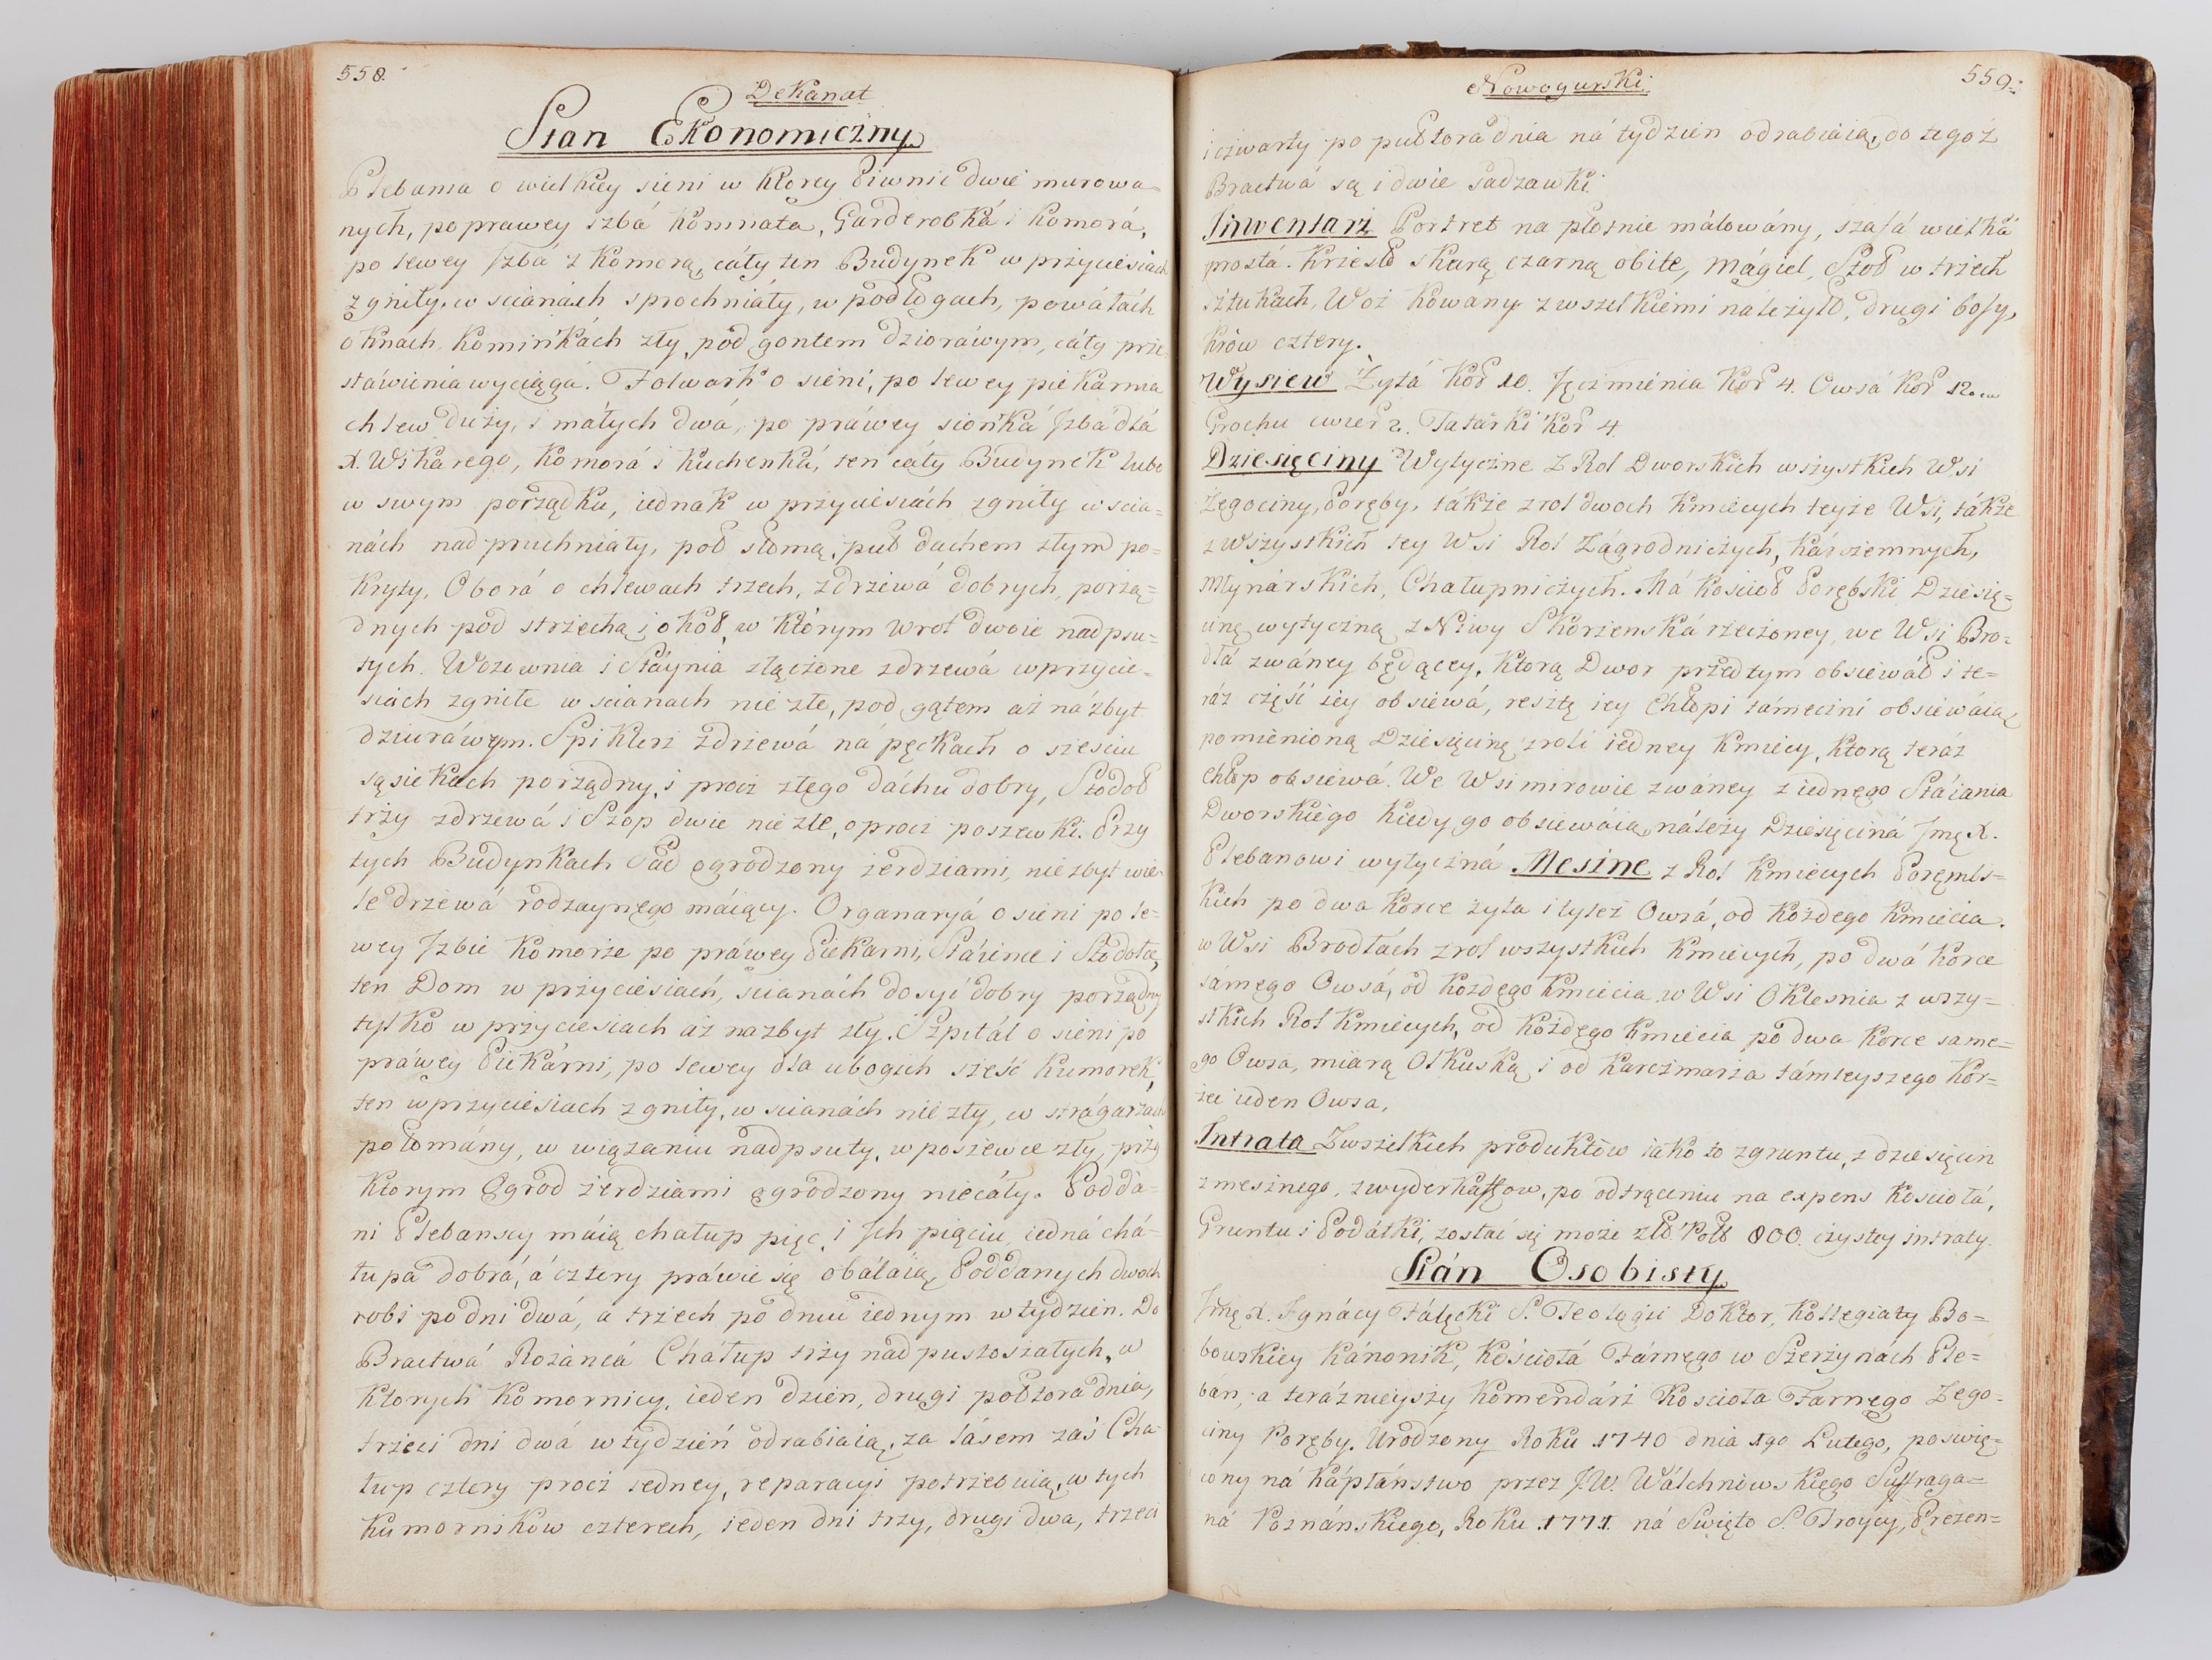 558.
Dekanat
Stan Ekonomiczny
Plebania o wielkiey sieni w ktorey Piwnic dwie murowa=
nych, po prawey izbá komnata, Garderobká i komorá,
po lewey Jzbá z komorą, cáły ten Budynek w przyciesiach
zgniły, w scianách sprochniáły, w podłogach, powáłách
oknach, kominkách zły, pod gontem dziorawym, cáły prze
stáwienia wyciągá. Folwark o sieni, po lewey piekarnia
chlew duży, i máłych dwá, po práwey sionká Jzbá dlá
X. Wikarego, komorá i kuchenká, ten cáły Budynek lubo
w swym porządku, iednak w przyciesiách zgniły w scia=
nách nadpruchniały, pod słomą, pod dachem złym po=
kryty, Oborá o chlewach trzech, z drzewá dobrych, porzą=
dnych pod strzechą, i okół, w którym wrot dwoie nadpsu=
tych. Wozownia i Stáynia złączone z drzewá w przycie=
siách zgniłe w scianach nie złe, pod gątem aż ná zbyt
dziuráwym. Spiklerz z drzewá ná pęckach o sześciu
sąsiekach porządny, i procz złego dáchu dobry, Stodoł
trzy z drzewá i Szop dwie nie złe, oprocz poszewki. Przy
tych Budynkach Sad ogrodzony żerdziami, nie zbyt wie=
le drzewá rodzaynego máiący. Organaryá o sieni po le=
wey Jzbie komorze po práwey Piekarni, Stáience i Stodołce,
ten Dom w przyciesiach, scianách dosyć dobry porządny
tylko w przyciesiach aż nazbyt zły. Szpitál o sieni po
práwey Piekárni, po lewey dla ubogich sześć kumorek,
ten w przyciesiach zgniły, w scianách nie zły, w strágarzach
połomány, w wiązaniu nadpsuty, w poszewce zły, przy
ktorym Ogrod żerdziami ogrodzony niecáły. Podda=
ni Plebanscy máią chałup pięć, i Jch pięciu, iedná chá=
łupa dobrá, á cztery práwie się obáláią, Poddanych dwoch
robi po dni dwá, a trzech po dniu iednym w tydzien. Do
Bractwá Rożáncá Chałup trzy nadpustoszałych, w
ktorych komornicy, ieden dzien, drugi połtora dnia,
trzeci dni dwá w tydzień odrabiaią, za lásem zaś Cha=
łup cztery procz iedney, reparacyi potrzebuią, w tych
kumornikow czterech, ieden dni trzy, drugi dwa, trzeci
Nowogurski
559.
i czwarty po pułtora dnia ná tydzien odrabiaią, do tegoż
Bractwá są i dwie sadzawki
Inwentarz Portret na płotnie málowány, szafá wielká
prostá. Krzesło skurą czarną obite, Mágiel, Stoł w trzech
sztukach, Woz kowany z wszelkiemi náleżyto, drugi bosy,
krów cztery.
Wysiew Żytá kor 10. Jęczmienia kor 4. Owsá kor 12.
Grochu cwierc 2. Tatárki kor 4
Dziesięciny Wytyczne z Rol Dworskich wszystkich Wsi
Żegociny, Poręby, tákże z rol dwoch kmiecych teyże Wsi, tákże
z wszystkich tey Wsi Rol Zágrodniczych, kárczemnych,
Młynárskich, Chałupniczych. Má kościoł Porębski Dziesię=
cinę wytyczną z Niwy Skorzenská rzeczoney, we Wsi Bro=
dłá zwáney będącey, ktorą Dwor przedtym obsiewáł i te=
ráz część iey obsiewá, resztę iey Chłopi támeczni obsiewáią
pomienioną Dziesięcinę z roli iedney kmiecy, ktorą teráz
chłop obsiewá. We Wsi mirowie zwáney z iednego Stáiania
Dworskiego kiedy go obsiewáią, náleży Dziesięciná Jmę X.
Plebanowi wytyczná Meszne z Rol kmiecych Porębs=
kich po dwa korce żyta i tyleż Owsá, od kożdego kmiecia.
w Wsi Brodłách z rol wszystkich kmiecych, po dwá korce
sámego Owsá, od kożdego kmiecia w Wsi Oklesnia z wszy=
stkich Rol kmiecych, od kożdego kmiecia po dwa korce same=
go Owsa, miarą Olkuską i od karczmarza támteyszego kor=
zec ieden Owsa,
Intrata Z wszelkich produktow iako to z gruntu, z dziesięcin
z mesznego, z wyderkaffow, po odtrąceniu na expens kościołá,
Gruntu i Podátki, zostać się może zło. Pols 800. czystey intraty.
Stán Osobisty
Jmę X. Jgnácy Fálęcki S. Teologii Doktor, kollegiaty Bo=
bowskiey kánonik, kościołá Fárnego w Szerzynach Ple=
ban, a teráznieyszy komendárz kościoła Farnego Żego=
ciny Poręby. Urodzony Roku 1740 dnia 1go Lutego, poswię=
cony ná kápłáństwo przez J.W. Wálchnowskiego Suffraga=
ná Poznánskiego, Roku 1771. ná Swięto S. Troycy, Prezen=